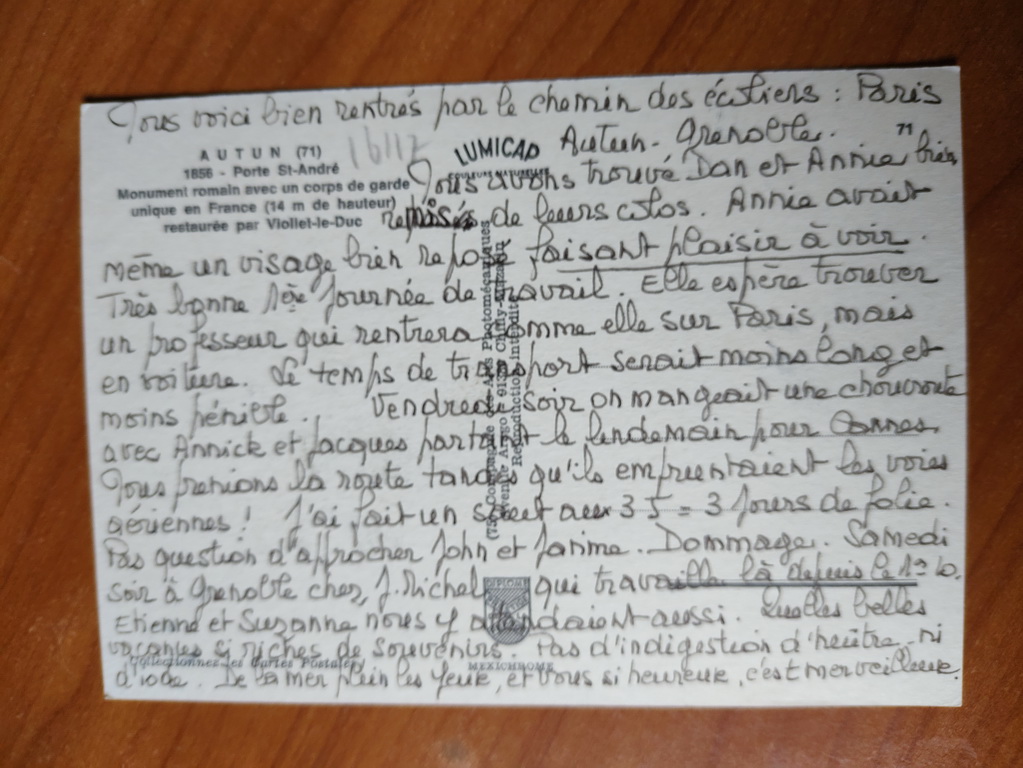 Nous voici bien rentrés par le chemin des écoliers : Paris
Autun - Grenoble.
71
16112
LUMICAP
AUTUN (71)
1856 - Porte St-André
Monument romain avec un corps de garde
unique en France (14 m de hauteur)
restaurée par Viollet-le-Duc
Nous avons trouvé Dan et Annie bien
remisés de leurs colos. Annie avait
même un visage bien reposé faisant plaisir à voir.
Très bonne 1ère journée de travail. Elle espère trouver
un professeur qui rentrera comme elle sur Paris, mais
en voiture. Le temps de transport serait moins long et
moins pénible. Vendredi soir on mangeait une choucroute
avec Annick et Jacques partant le lendemain pour Cannes.
Nous prenions la route tandis qu'ils empruntaient les voies
aériennes ! J'ai fait un saut aux 3 5 = 3 jours de folie.
Pas question d'approcher John et Janine. Dommage. Samedi
soir à Grenoble chez J. Michel qui travaille là depuis le 1er
Etienne et Suzanne nous y attendaient aussi. Quelles belles
vacances si riches de souvenirs. Pas d'indigestion d'huître, ni
d'iode. De la mer plein les yeux, et vous si heureux, c'est merveilleux.
Compagnie des Arts Photomécaniques
Reproduction interdite
DIPLOME
Collectionnez les Cartes Postales
MEXICHROME